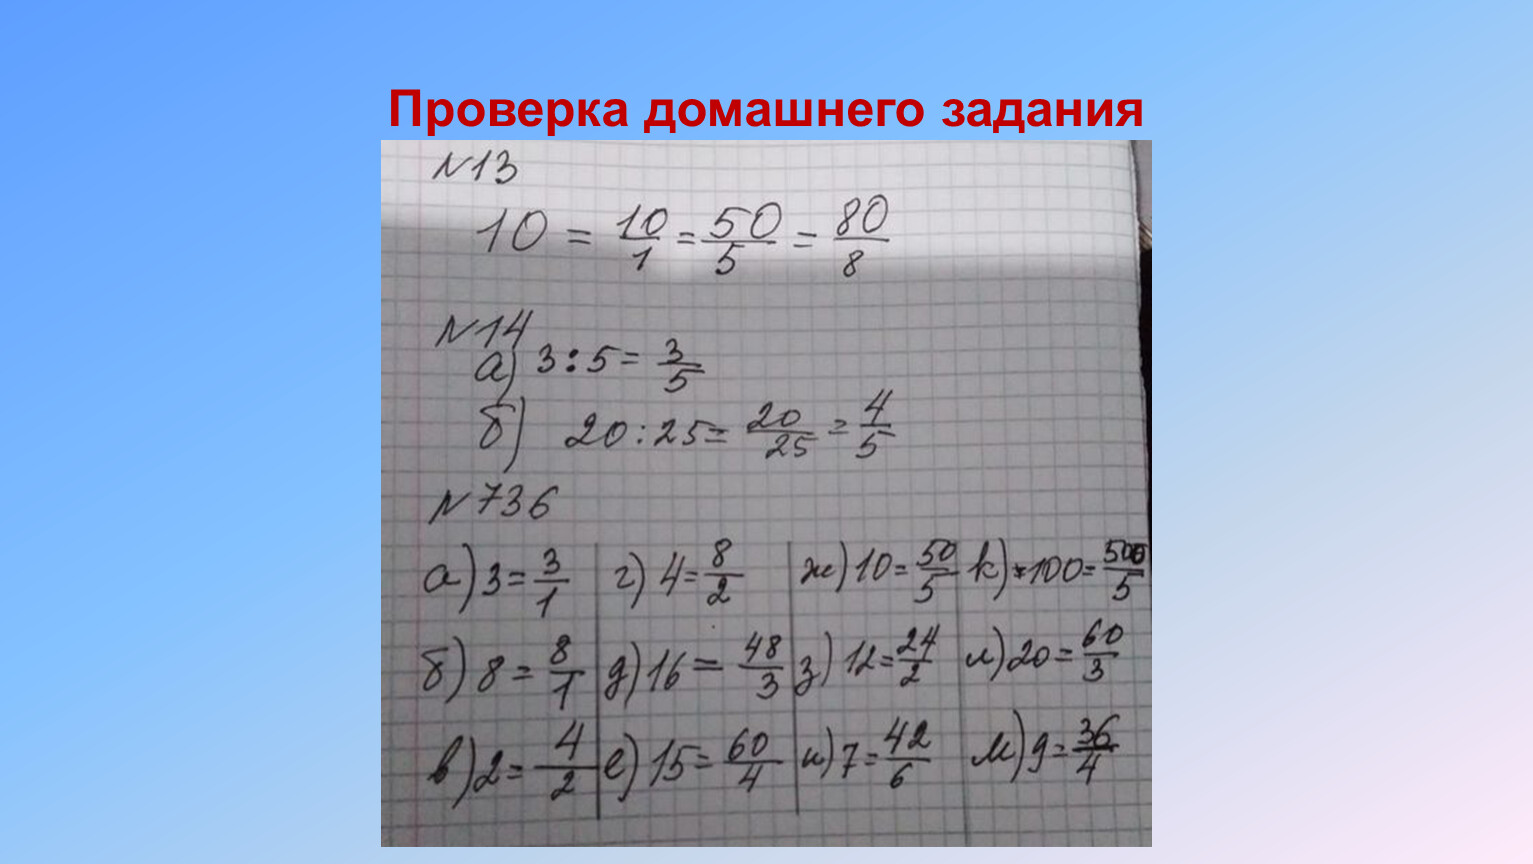 Проверка домашнего задания
N13
10 = 10/1 = 50/5 = 80/8
N14
а) 3:5 = 3/5
б) 20:25 = 20/25 = 4/5
N736
а) 3 = 3/1 г) 4 = 8/2 ж) 10 = 50/5 к) 100 = 500/5
б) 8 = 8/1 д) 16 = 48/3 з) 12 = 24/2 л) 20 = 60/3
в) 2 = 4/2 е) 15 = 60/4 и) 7 = 42/6 м) 9 = 36/4